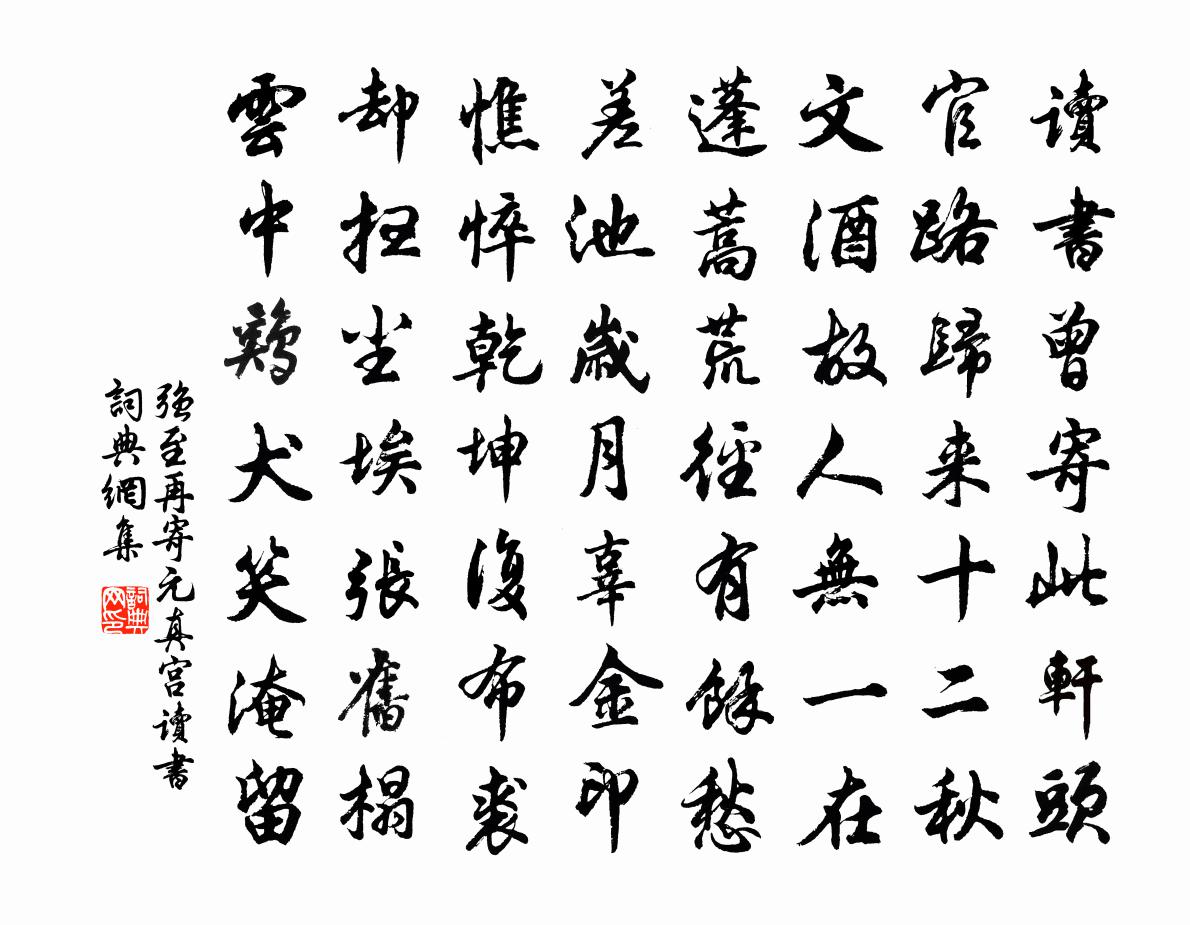 讀書曾寄此軒頭
官路歸来十二秋
文酒故人無一在
蓬蒿荒徑有餘愁
差池歲月辜金印
憔悴乾坤復布裘
却扫尘埃張舊榻
雲中鷄犬笑淹留
强至再寄元真宫讀書
詞典網集
詞典网印